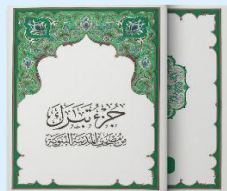 جزء تبارك
من مصحف المدينة النبوية